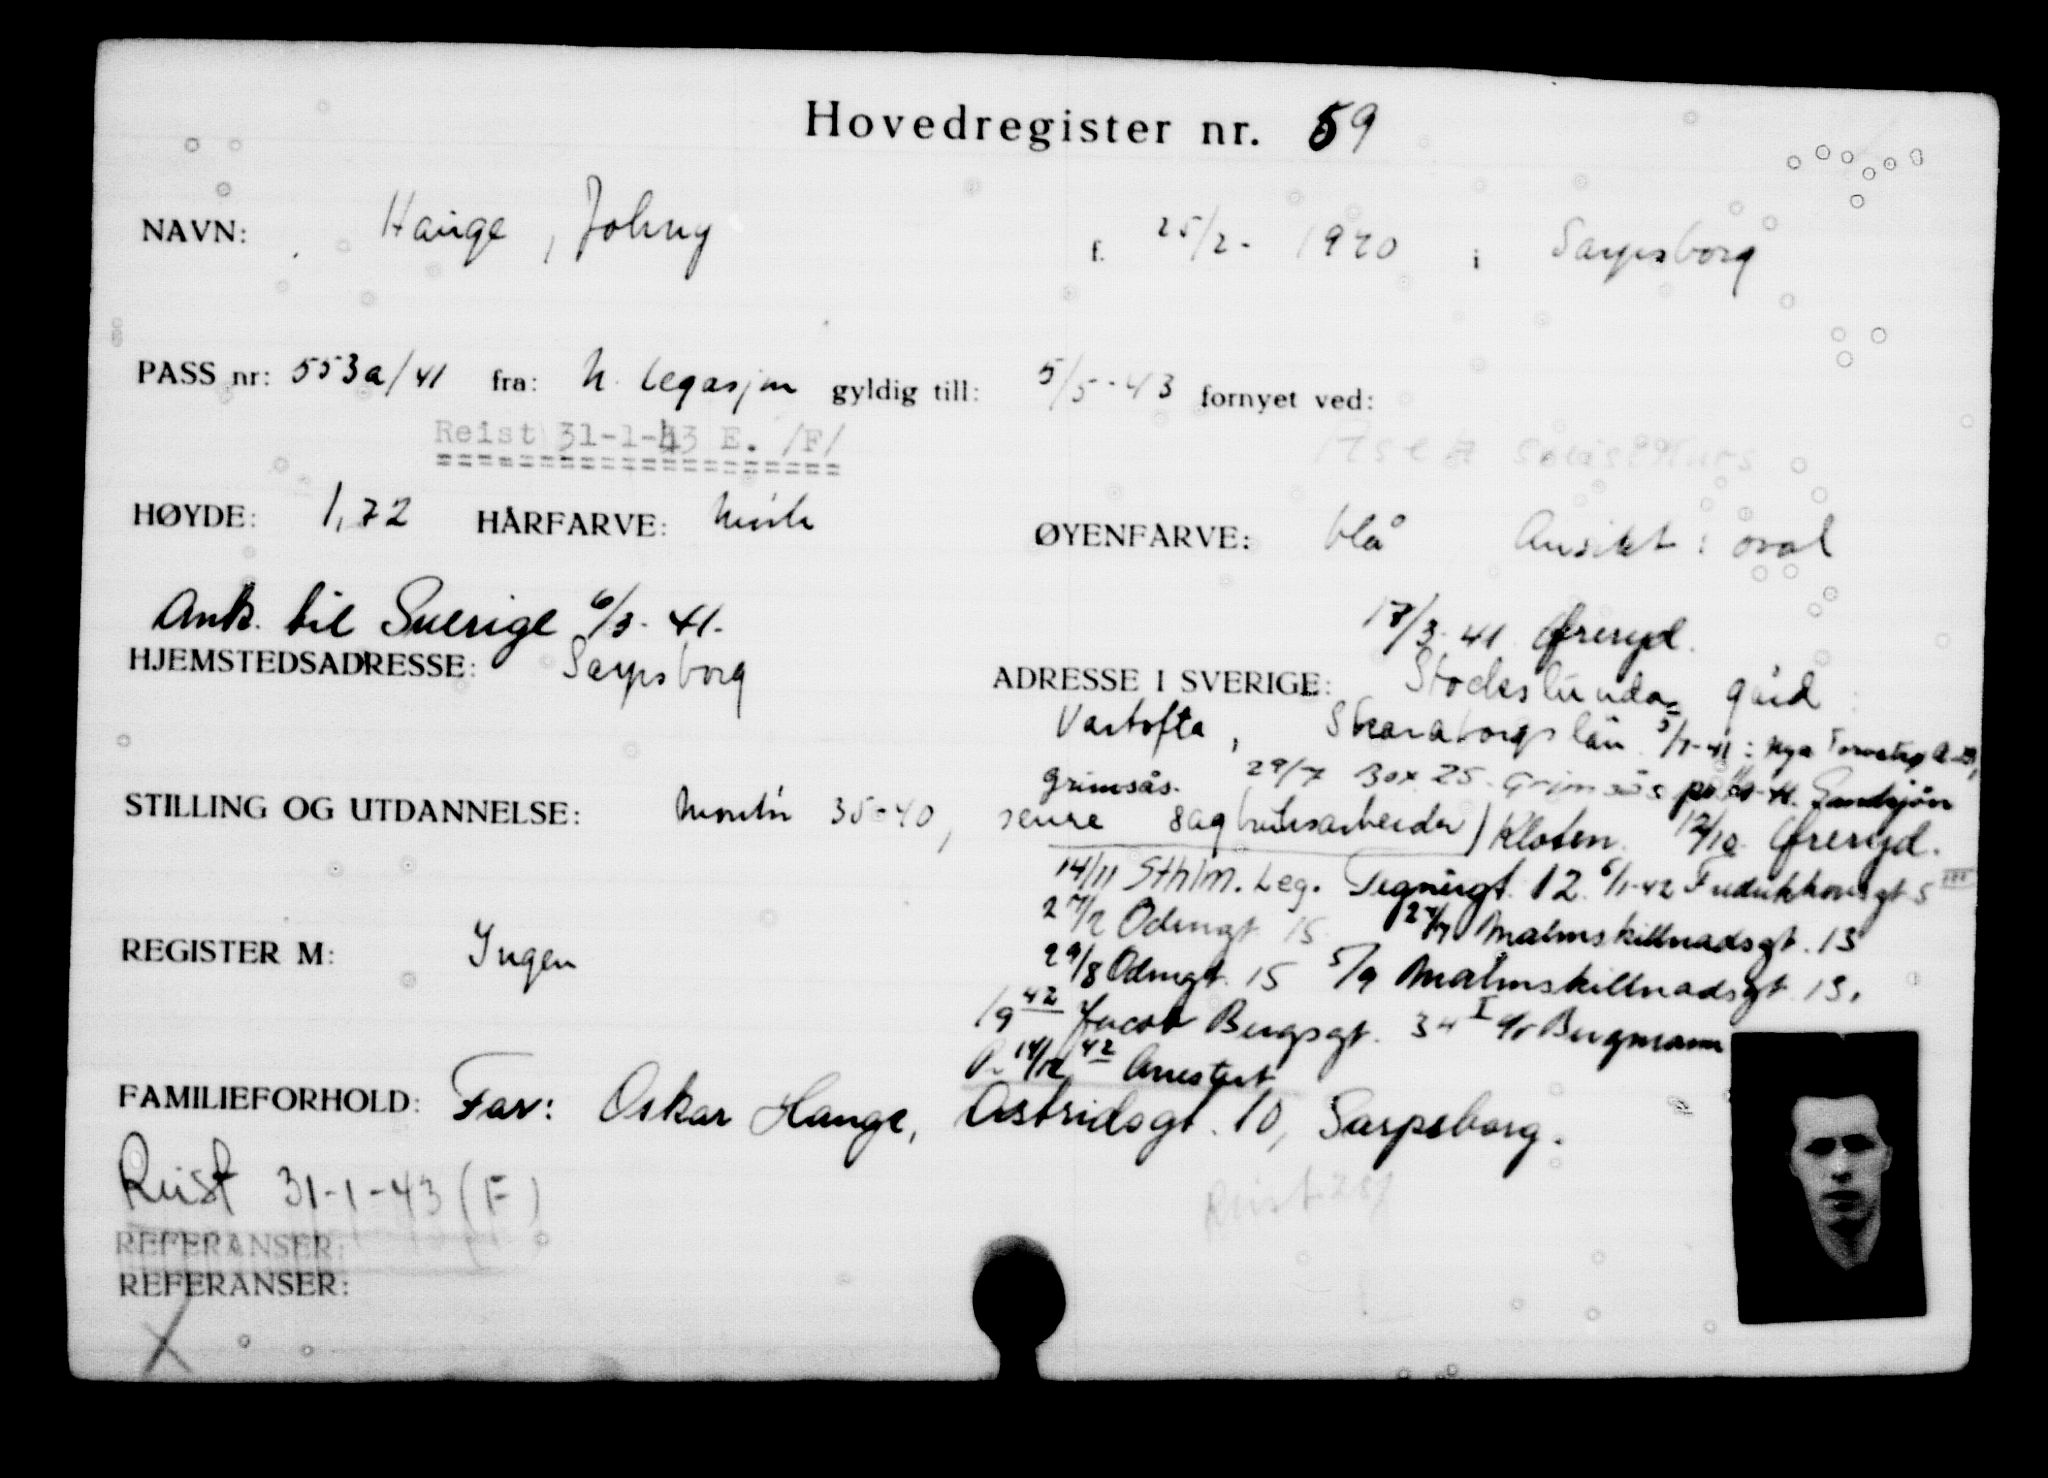 Hovedregister nr. 59
NAVN: Hauge, Johny f. 25/2 - 1920 i Sarpsborg
PASS nr: 553a/41 fra: N. Legasjon gyldig till: 5/5-43 fornyet ved:
Reist 31-1-43 E. /F/
HØYDE: 1,72 HÅRFARVE: mörk ØYENFARVE: blå Ansikt: oval
Ank. til Sverige 6/3-41. 18/3-41 Øreryd.
HJEMSTEDSADRESSE: Sarpsborg ADRESSE I SVERIGE: Stockslunda gård
Vartofta, Skaraborgs län. 5/5-41: nya Torvströ A-B,
Grimsås. 29/7 Box 25. Grimsås Sandsjön
STILLING OG UTDANNELSE: Montör 35-40, senre sagbruksarbeider) Kloten. 12/10 Öreryd.
14/11 Sthlm. Leg. Tegnérgt. 12. 6/1-42 Fredrikhovsgt 5 III
27/2 Odengt 15. 27/7 Malmskillnadsgt. 13
REGISTER M: Ingen
29/8 Odengt. 15 5/9 Malmskillnadsgt. 13.
1/9 42 Jacob Bergsgt. 34 I c/o Bergmann
P. 14/12 42 Arrestert
FAMILIEFORHOLD: Far: Oskar Hauge, Astridsgt. 10, Sarpsborg.
Reist 31-1-43 (F)
REFERANSER:
REFERANSER:
X